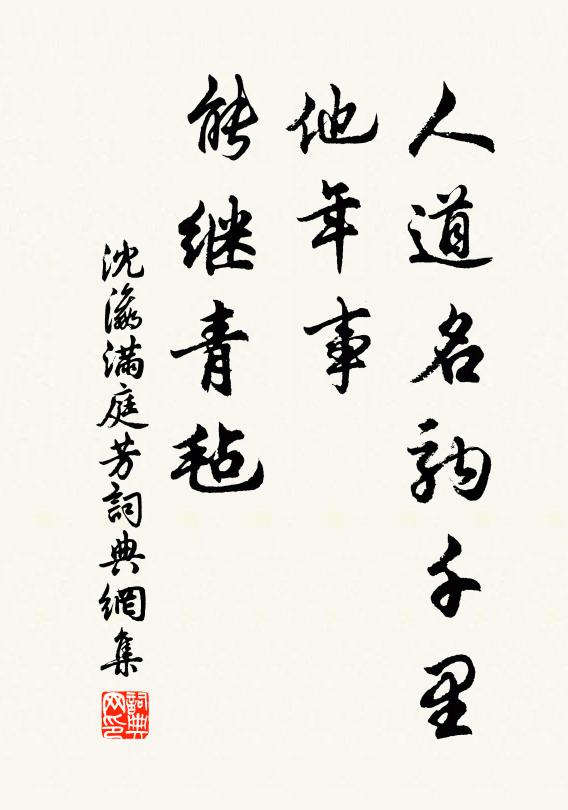 人道名駒千里
他年事
能继青毡
沈瀛滿庭芳詞典網集
詞典
网印